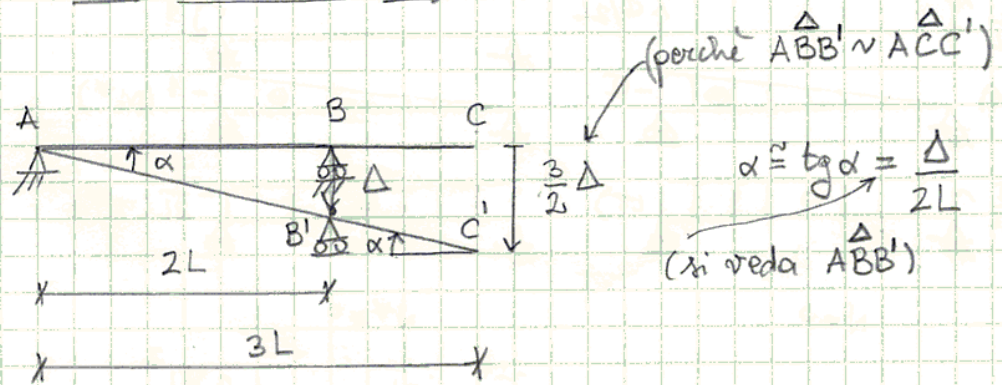 (perchè AB̂B' ~ AĈC')
A B C
α Δ 3/2 Δ α ≅ tg α = Δ/2L
B' α C'
2L (si veda AB̂B')
3L